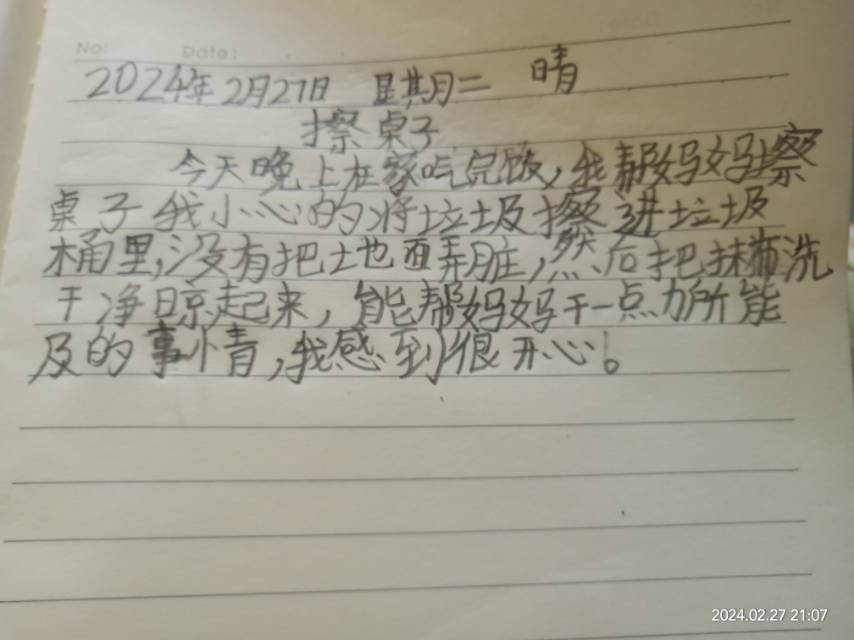 No:
Date:
2024年2月27日 星期二 晴
擦桌子
今天晚上在家吃完饭,我帮妈妈擦
桌子我小心的将垃圾擦进垃圾
桶里,没有把土也面弄脏,然后把抹布洗
干净晾起来,能帮妈妈干一点力所能
及的事情,我感到很开心!。
2024.02.27 21:07